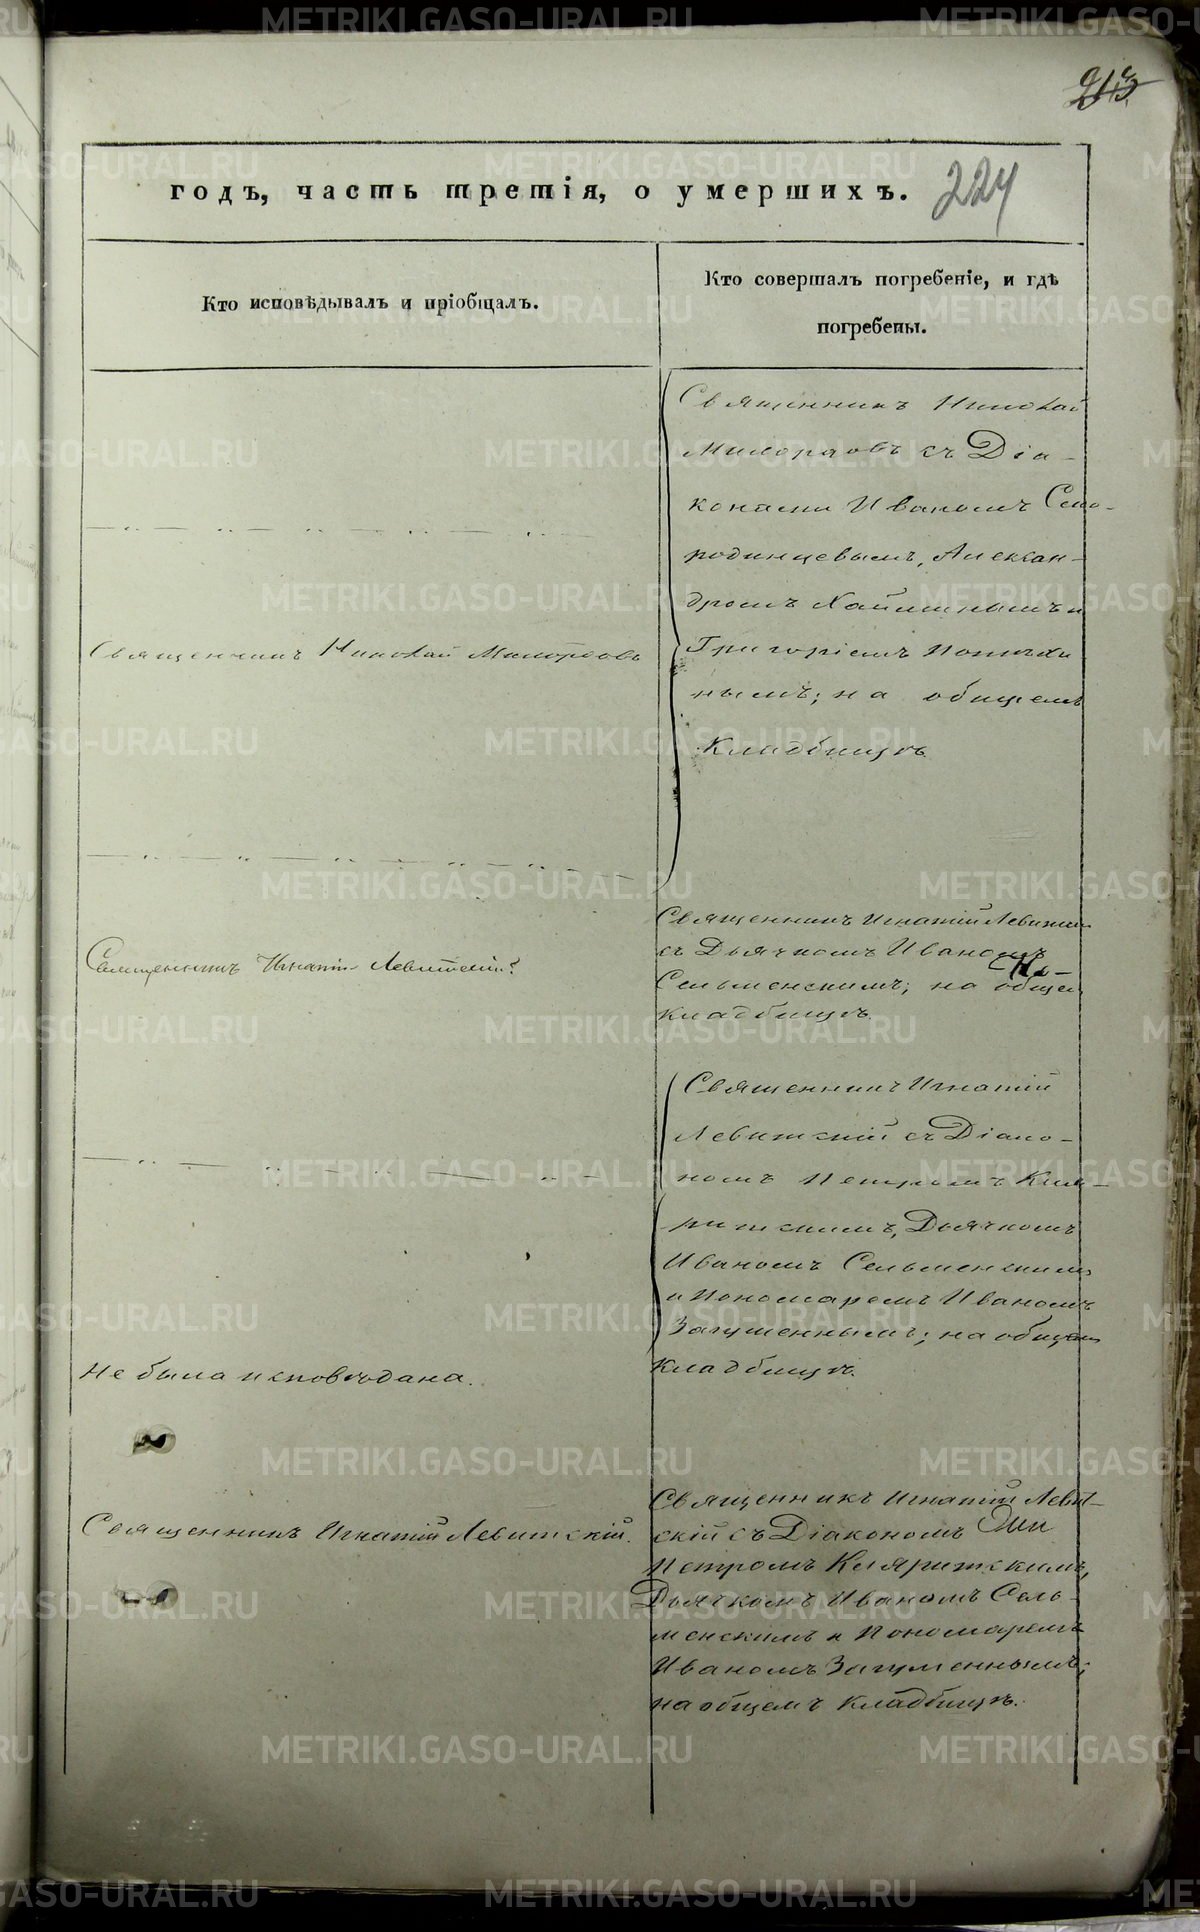 213
годъ, часть третія, о умершихъ. 224
Кто исповѣдывалъ и пріобщалъ.
Кто совершалъ погребеніе, и гдѣ
погребены.
Священникъ Николай
съ Діа-
конами Иваномъ
родинцевымъ, Алексан-
дромъ и
Григоріемъ
нымъ; на общемъ
кладбищѣ.
Священникъ Николай
Священникъ Игнатій
съ Дьячкомъ Иваномъ
Сельменскимъ; на общемъ
кладбищѣ.
Священникъ Игнатій Левитскій
Священникъ Игнатій
Левитскій съ Діако-
номъ Петромъ
Дьячкомъ
Иваномъ Сельменскимъ
и Пономаремъ Иваномъ
Загуменнымъ; на общемъ
кладбищѣ.
Не была исповѣдана.
Священникъ Игнатій Левитскій.
Священникъ Игнатій Левит-
скій съ Діакономъ
Петромъ
Дьячкомъ Иваномъ Сель-
менскимъ и Пономаремъ
Иваномъ Загуменнымъ;
на общемъ кладбищѣ.
METRIKI.GASO-URAL.RU